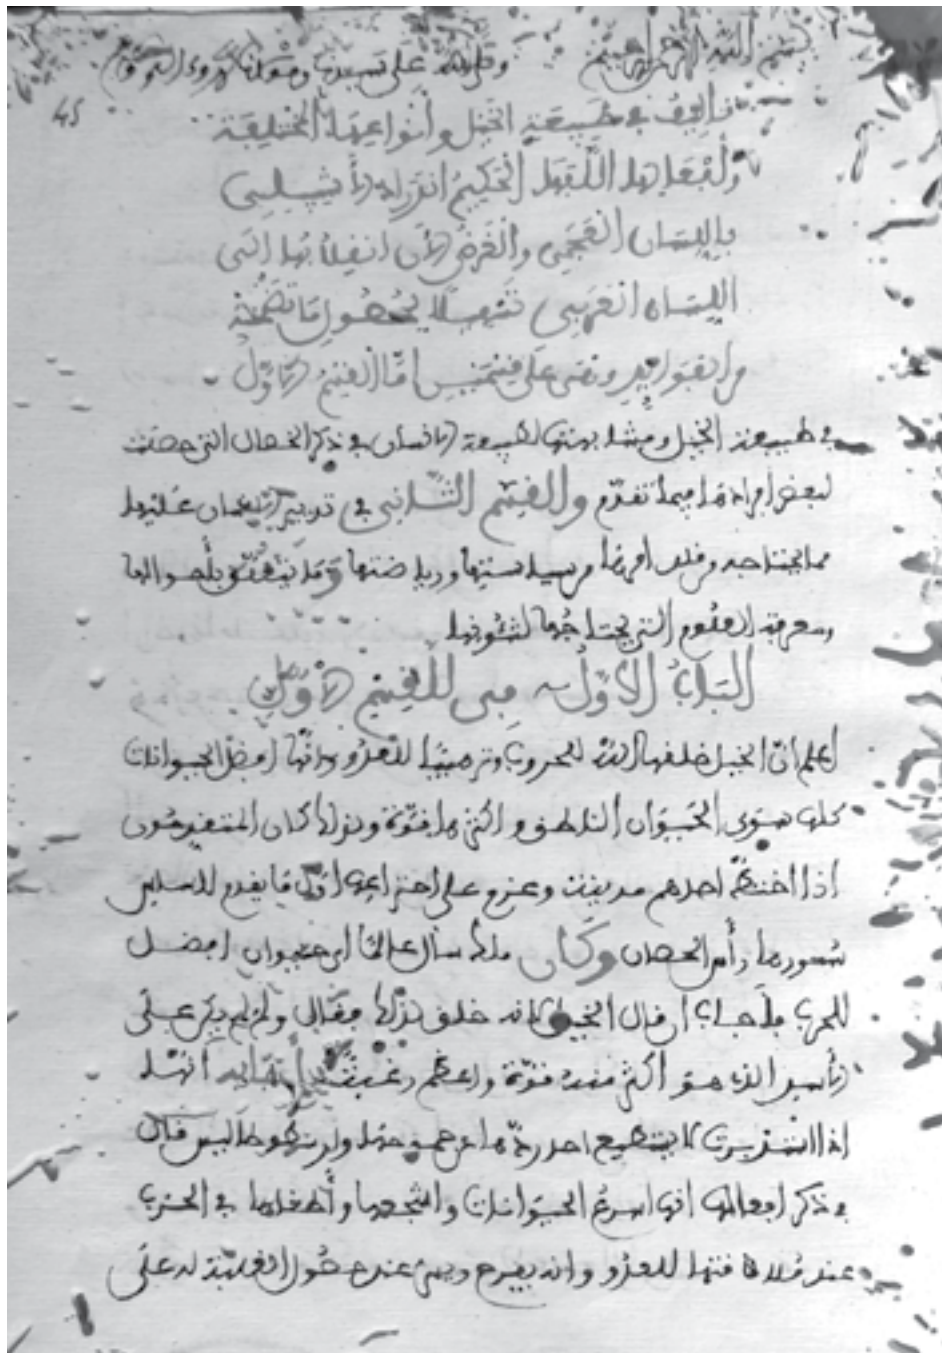 بسم الله الرحمن الرحيم وصلى الله على سيدنا ومولانا
45
تأليف في طبيعة الخيل وأنواعها المختلفة
وأفعالها اللقها الحكيم اندرات الأشبيلي
باللسان العجمي والغرض الآن انقلابها الى
اللسان العربي تسهيلا لحصول ما تضمنه
من الفوائد ونقص على قسمين اما القسم الاول
في طبيعة الخيل ومشابهتها لطبيعة الانسان في ذكر الخصال التي حصلت
لبعض افرادها فيما تقدم والقسم الثاني في تدبير عليها
مما يحتاجه من قلد امرها من سياستها ورياضتها وما يتعلق بأحوالها
ومعرفة العلوم التي يحتاجها لشئونها
الباب الاول من القسم الاول
اعلم ان الخيل خلقها الله للحروب وترهيبا للعدو وانها افضل الحيوانات
كلها سوى الحيوان الناطق واكثرها قوة ولذلك كان المتقدمون
اذا اختط احدهم مدينة وعزم على اختراعها اول ما يقدم لتاسيس
سورها رأس الحصان وكان ملك سأل عالما اي حيوان افضل
للحرب فأجاب ان قال الخيل لانه خلق لذلك فقال ولم لم يكن على
الأسد الذي هو أكثر منه قوة واعظم انها
اذا لا يستطيع احد ردها عن جموحها وارسطوطاليس قال
في ذكر افعالها انها اسرع الحيوانات واشجعها وألطفها في الحرب
عند ملاقاتها للعدو وانه يفرح ويهز عند حصول الغلبة له على